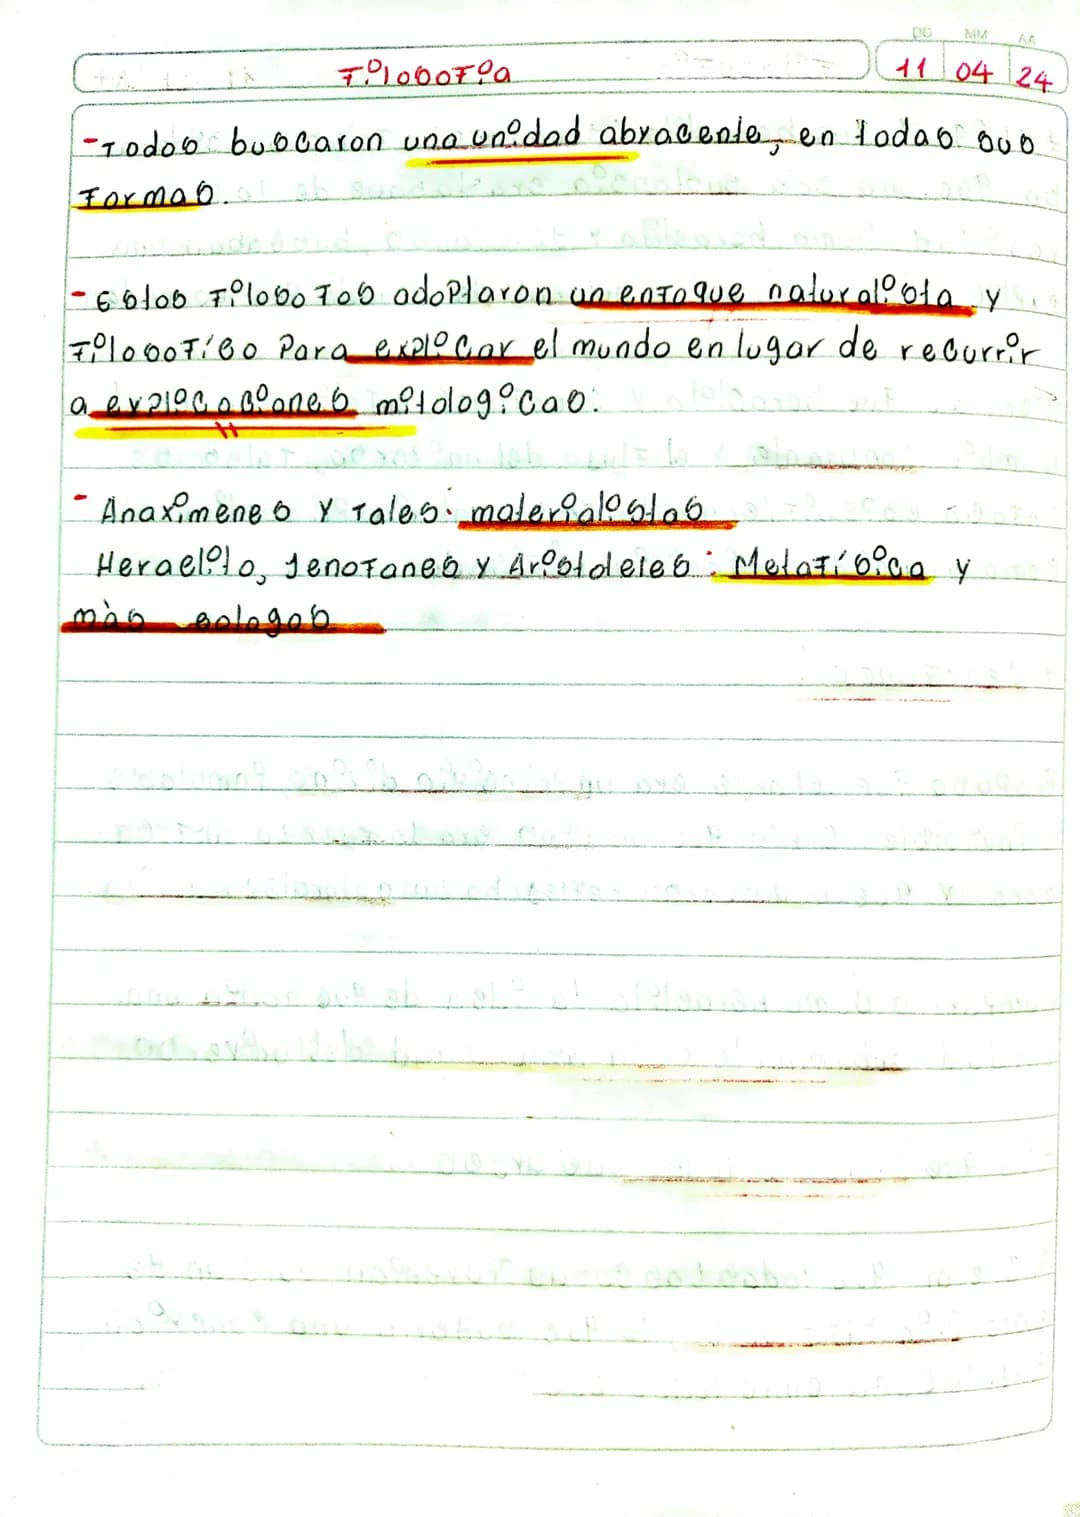 DD MM AA
Filosofia 11 04 24
-Todos buscaron una unidad abracente, en todas sus
formas.
-Estos filosofos adoptaron un enfoque naturalista y
filosofíso para explicar el mundo en lugar de recurrir
a explicaciones mitologicas.
- Anaximenes y Tales: materialistas
Heraelito, Jenofanes y Aristoleles: Metafísica y
màs